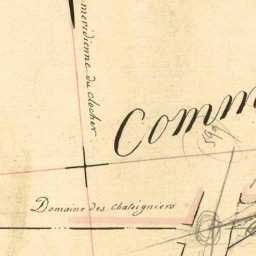 méridienne du clocher
Comm
Domaine des Chateigniers